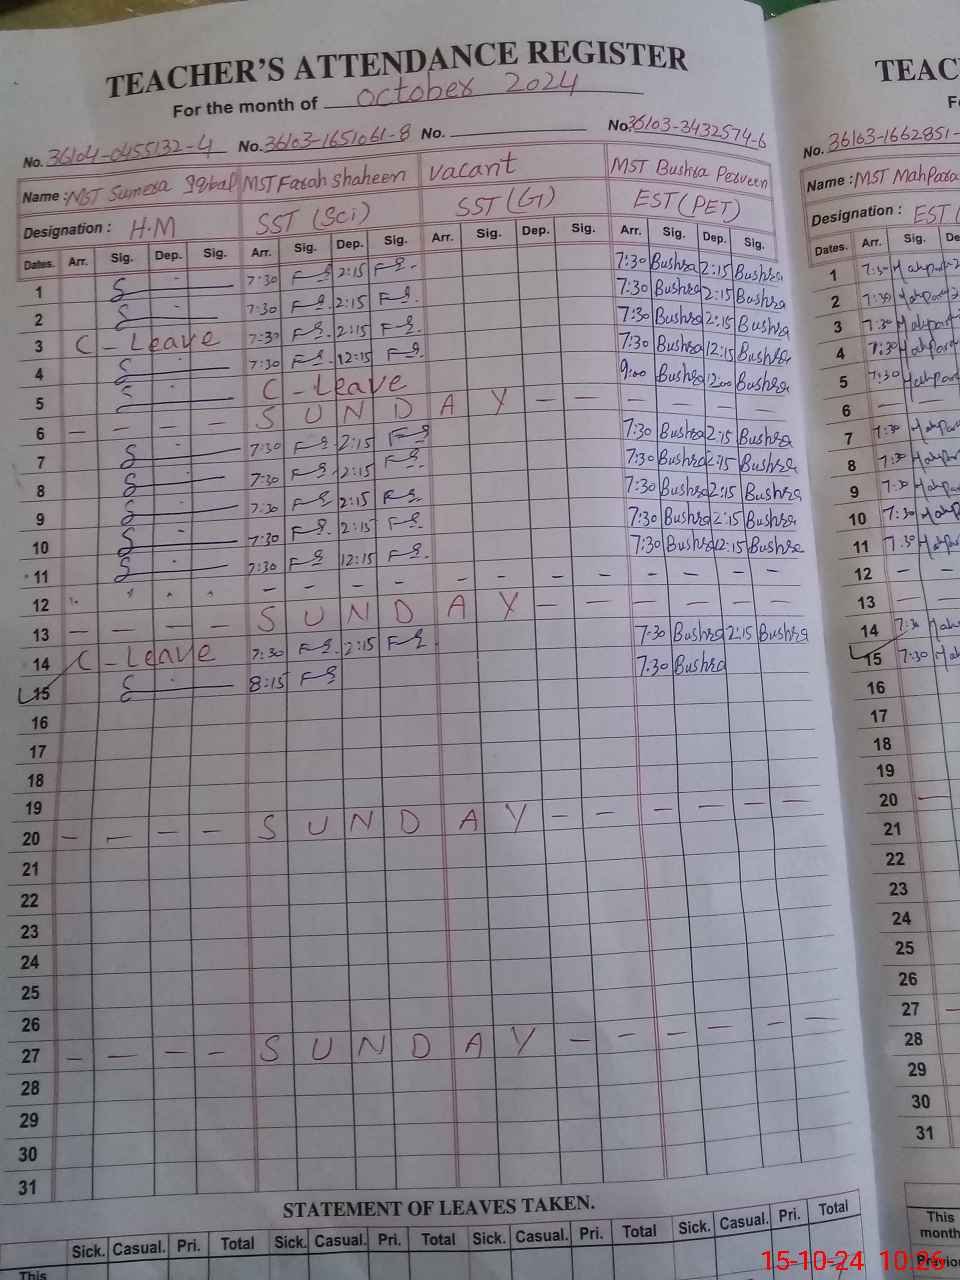 TEACHER'S ATTENDANCE REGISTER
For the month of October 2024
No. 36104-0455132-4 No. 36103-1651061-8 No. No. 36103-3432574-6
Name : MST Sumera Iqbal MST Farah Shaheen Vacant MST Bushra Perveen
Designation : H.M SST (Sci) SST (G) EST (PET)
Dates. Arr. Sig. Dep. Sig. Arr. Sig. Dep. Sig. Arr. Sig. Dep. Sig. Arr. Sig. Dep. Sig.
1 7:30 2:15 7:30 Bushra 2:15 Bushra
2 7:30 2:15 7:30 Bushra 2:15 Bushra
3 C - Leave 7:30 2:15 7:30 Bushra 2:15 Bushra
4 7:30 12:15 7:30 Bushra 12:15 Bushra
5 C - Leave 9:00 Bushra 12:00 Bushra
6 - - - - S U N D A Y - - - - - -
7 7:30 2:15 7:30 Bushra 2:15 Bushra
8 7:30 2:15 7:30 Bushra 2:15 Bushra
9 7:30 2:15 7:30 Bushra 2:15 Bushra
10 7:30 2:15 7:30 Bushra 2:15 Bushra
11 7:30 12:15 7:30 Bushra 12:15 Bushra
12 - - - - - - - - - - - -
13 - - - - S U N D A Y - - - - - -
14 C - Leave 7:30 2:15 7:30 Bushra 2:15 Bushra
15 8:15 7:30 Bushra
16
17
18
19
20 - - - - S U N D A Y - - - - - -
21
22
23
24
25
26
27 - - - - S U N D A Y - - - - - -
28
29
30
31
STATEMENT OF LEAVES TAKEN.
Sick. Casual. Pri. Total Sick. Casual. Pri. Total Sick. Casual. Pri. Total Sick. Casual. Pri. Total
This
TEAC
No. 36103-1662851-
Name : MST Mahpara
Designation : EST (
Dates. Arr. Sig. De
1 7:30
2 7:30
3 7:30
4 7:30
5 7:30
6 - -
7 7:30
8 7:30
9 7:30
10 7:30
11 7:30
12 - -
13 - -
14 7:30
15 7:30
16
17
18
19
20 -
21
22
23
24
25
26
27 -
28
29
30
31
This
month
Previo
15-10-24 10:26